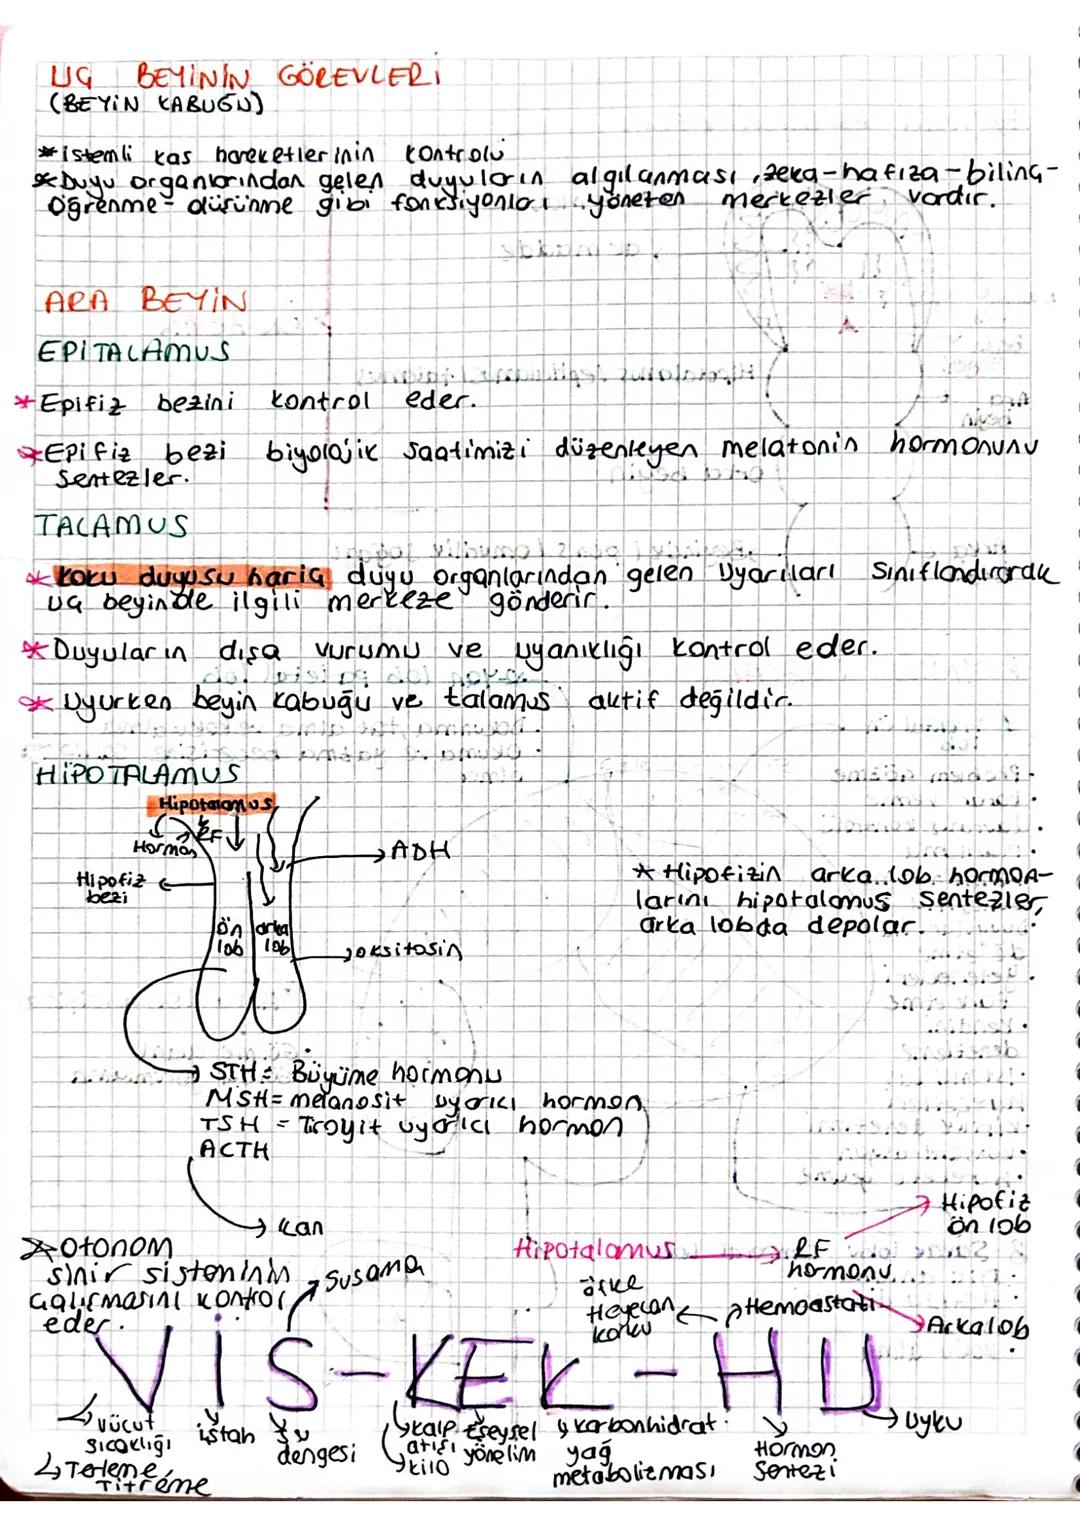 UÇ BEYİNİN GÖREVLERİ
(BEYİN KABUĞU)
*istemli kas hareketlerinin kontrolü
*Duyu organlarından gelen duyuların algılanması, zeka-hafıza-bilinç-
öğrenme-düşünme gibi fonksiyonları yöneten merkezler vardır.
ARA BEYİN
EPİTALAMUS
*Epifiz bezini kontrol eder.
*Epifiz bezi biyolojik saatimizi düzenleyen melatonin hormonunu
sentezler.
TALAMUS
*Koku duyusu hariç duyu organlarından gelen uyarıları sınıflandırarak
uç beyinde ilgili merkeze gönderir.
*Duyuların dışa vurumu ve uyanıklığı kontrol eder.
*Uyurken beyin kabuğu ve talamus aktif değildir.
HİPOTALAMUS
Hipotalamus
RF
Hormon
ADH
Hipofiz
bezi
ön
lob
arka
lob
oksitosin
* Hipofizin arka lob hormon-
larını hipotalamus sentezler,
arka lobda depolar.
STH= Büyüme hormonu
MSH= melanosit uyarıcı hormon
TSH = Tiroyit uyarıcı hormon
ACTH
kan
Hipotalamus
RF
hormonu
Hipofiz
ön lob
Arka lob
*Otonom
sinir sisteminin
çalışmasını kontrol
eder.
Susama
öfke
Heyecan
korku
Hemoastati
VİS-KEK-HU
Vücut
sıcaklığı
Terleme,
Titreme
iştah
su
dengesi
kalp
atışı
kilo
Eşeysel
yönelim
karbonhidrat
yağ
metabolizması
Hormon
Sentezi
uyku